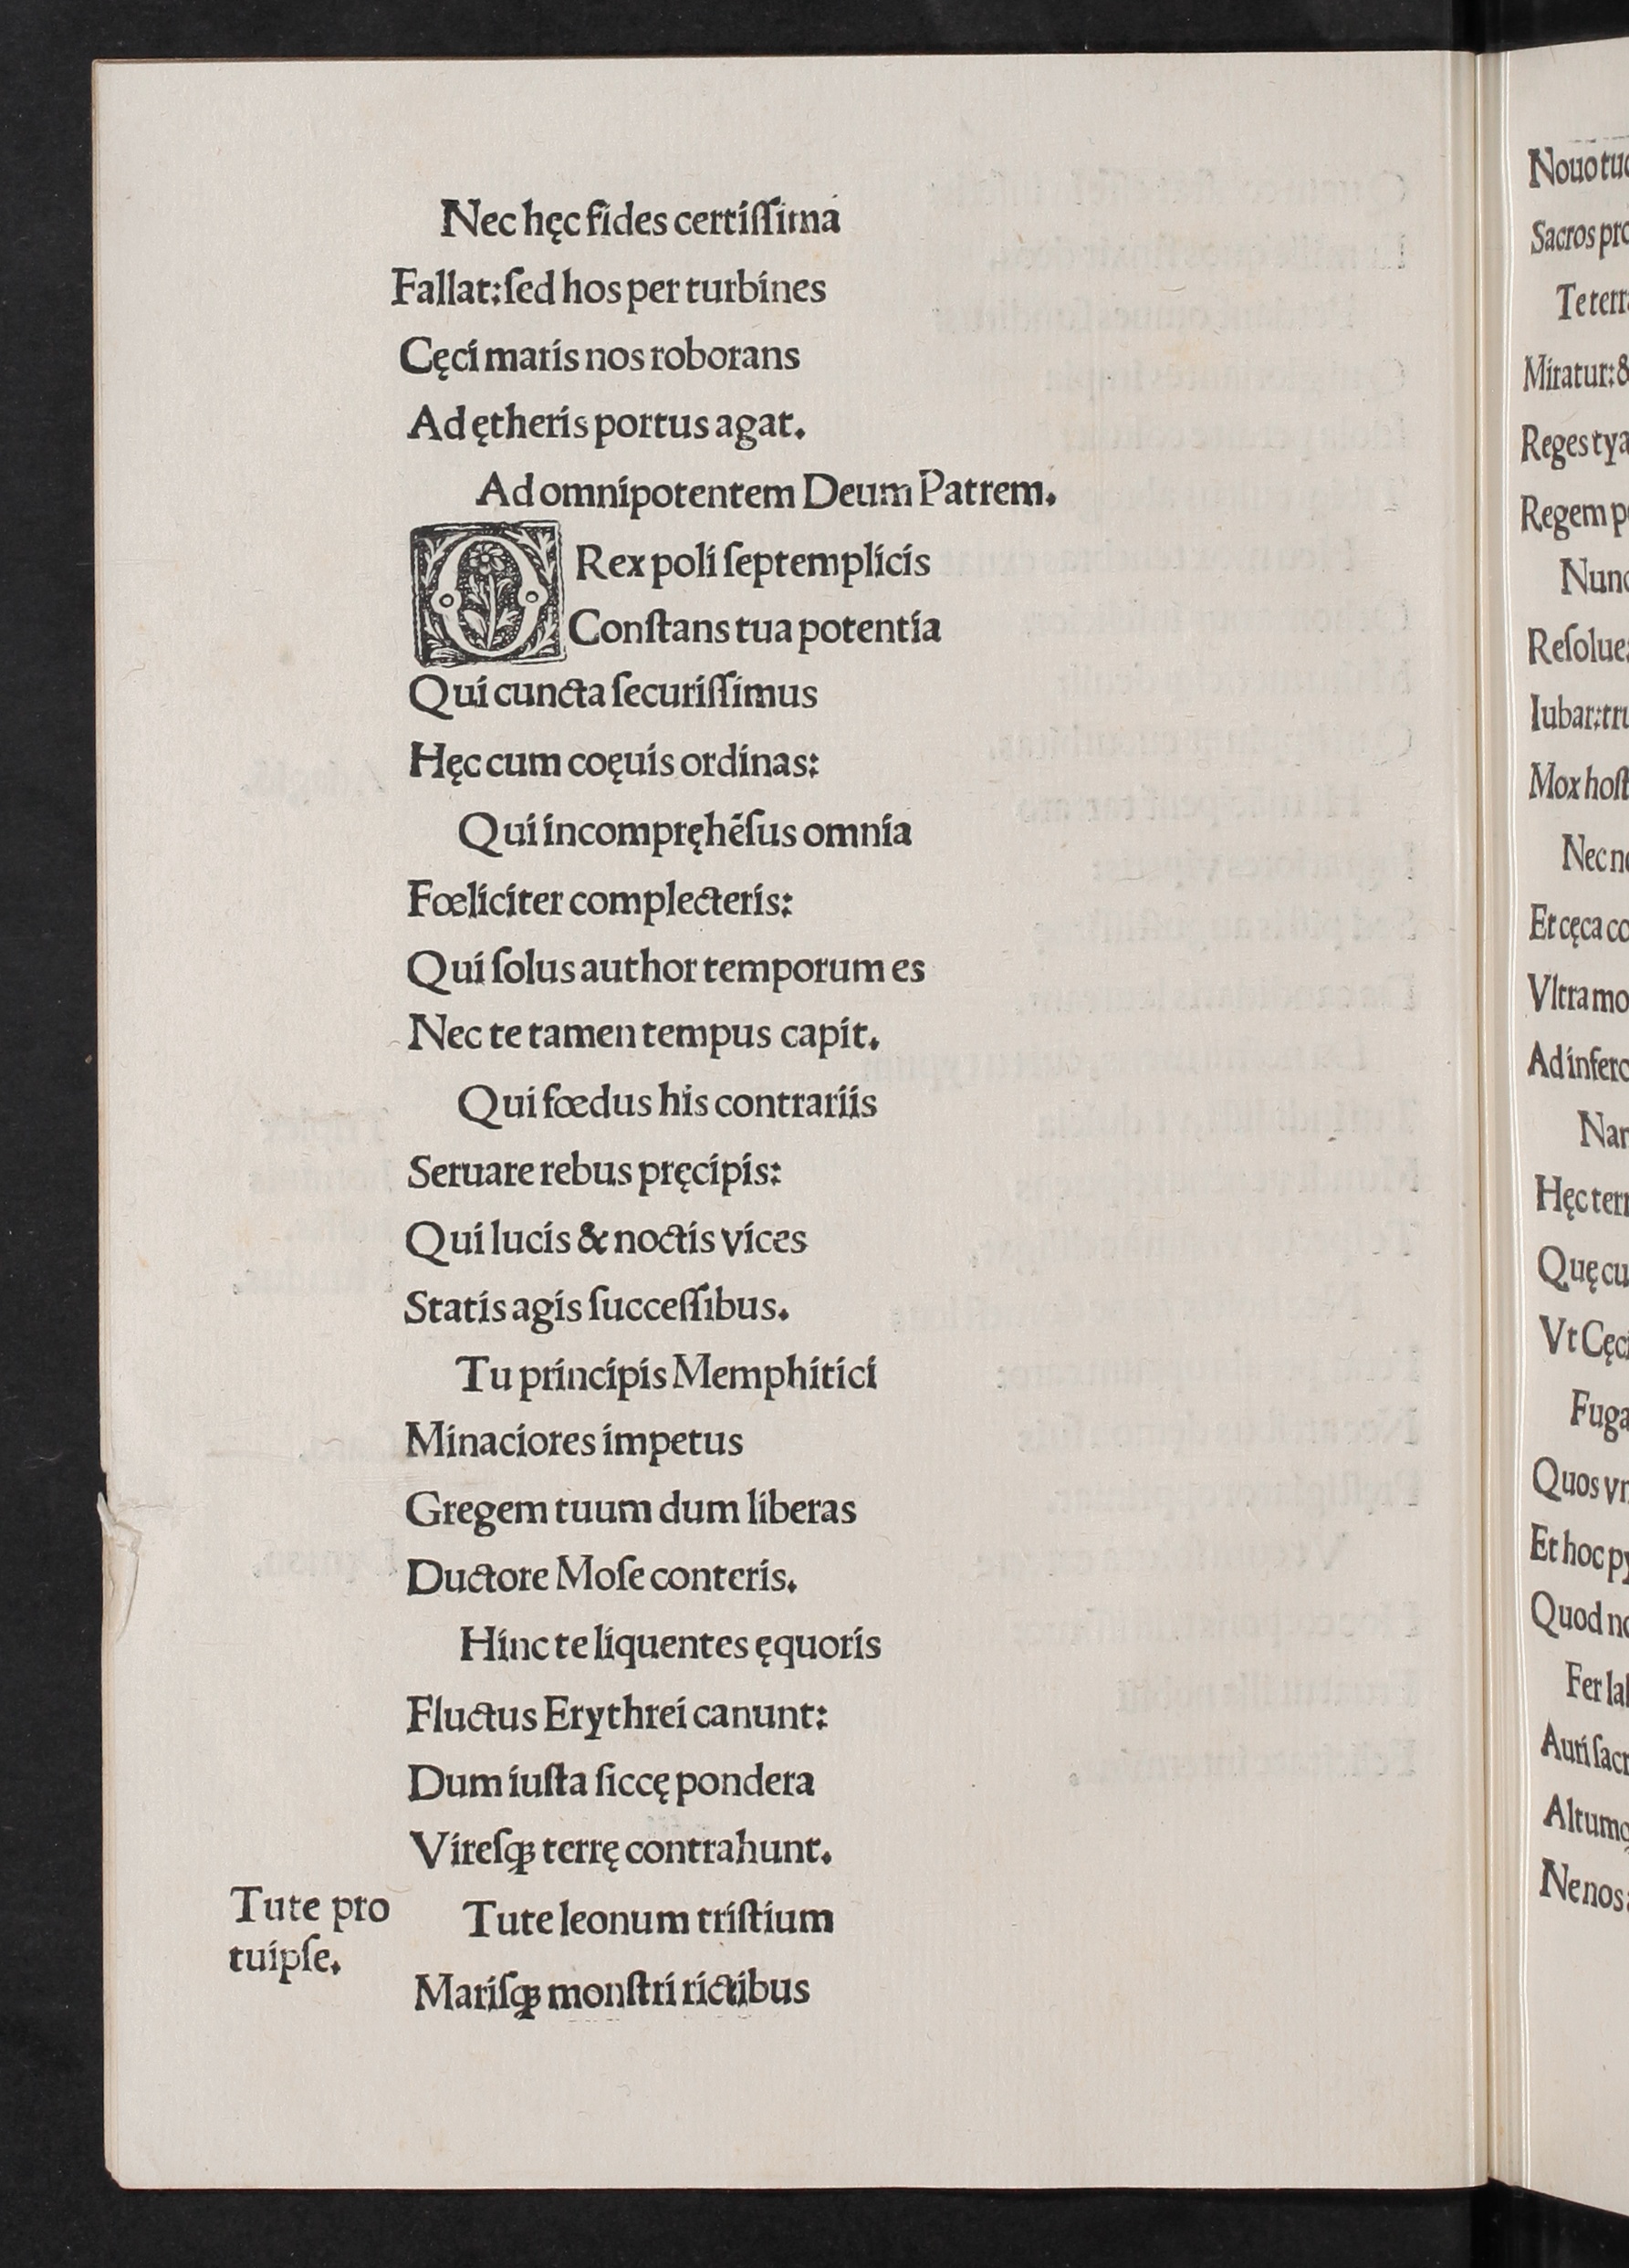 Nec hęc fides certiſſima
Fallat: ſed hos per turbines
Cęci maris nos roborans
Ad ętheris portus agat.
Ad omnipotentem Deum Patrem.
O Rex poli ſeptemplicis
Conſtans tua potentia
Qui cuncta ſecuriſſimus
Hęc cum coęuis ordinas:
Qui incompręhēſus omnia
Fœliciter complecteris:
Qui ſolus author temporum es
Nec te tamen tempus capit.
Qui fœdus his contrariis
Seruare rebus pręcipis:
Qui lucis & noctis vices
Statis agis ſucceſſibus.
Tu principis Memphitici
Minaciores impetus
Gregem tuum dum liberas
Ductore Moſe conteris.
Hinc te liquentes ęquoris
Fluctus Erythrei canunt:
Dum iuſta ſiccę pondera
Vireſqꝫ terrę contrahunt.
Tute pro
tuipſe.
Tute leonum triſtium
Mariſqꝫ monſtri rictibus
Nouo
Sacros
Te
Miratur:
Reges
Regem
Iubar:
Mox
Nec
Et cęca
Vltra
Ad
Hęc
Vt
Quos
Et hoc
Quod
Fer
Auri
Ne nos